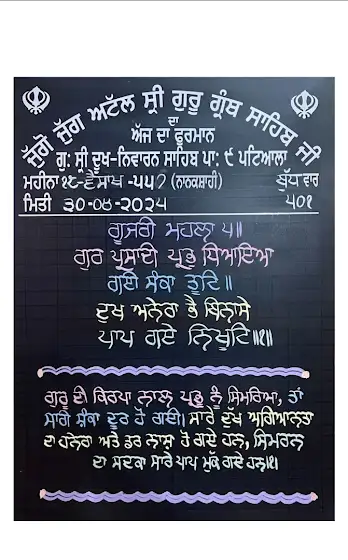 ਜੁੱਗੋ ਜੁੱਗ ਅਟੱਲ ਸ਼੍ਰੀ ਗੁਰੂ ਗ੍ਰੰਥ ਸਾਹਿਬ ਜੀ
ਦਾ
ਅੱਜ ਦਾ ਫੁਰਮਾਨ
ਗੁ: ਸ਼੍ਰੀ ਦੂਖ-ਨਿਵਾਰਨ ਸਾਹਿਬ ਪਾ: ੯ ਪਟਿਆਲਾ
ਮਹੀਨਾ ੧੮-ਵੈਸਾਖ-੫੫੭ (ਨਾਨਕਸ਼ਾਹੀ) ਬੁੱਧ ਵਾਰ
ਮਿਤੀ ੩੦-੦੪-੨੦੨੫ ੫੦੧
ਗੂਜਰੀ ਮਹਲਾ ੫॥
ਗੁਰ ਪ੍ਰਸਾਦੀ ਪ੍ਰਭੁ ਧਿਆਇਆ
ਗਈ ਸੰਕਾ ਤੂਟਿ॥
ਦੁਖ ਅਨੇਰਾ ਭੈ ਬਿਨਾਸੇ
ਪਾਪ ਗਏ ਨਿਖੂਟਿ॥੧॥
ਗੁਰੂ ਦੀ ਕਿਰਪਾ ਨਾਲ ਪ੍ਰਭੂ ਨੂੰ ਸਿਮਰਿਆ, ਤਾਂ
ਸਾਰੀ ਸ਼ੰਕਾ ਦੂਰ ਹੋ ਗਈ। ਸਾਰੇ ਦੁੱਖ ਅਗਿਆਨਤਾ
ਦਾ ਹਨੇਰਾ ਅਤੇ ਡਰ ਨਾਸ਼ ਹੋ ਗਏ ਹਨ, ਸਿਮਰਨ
ਦਾ ਸਦਕਾ ਸਾਰੇ ਪਾਪ ਮੁੱਕ ਗਏ ਹਨ।੧।